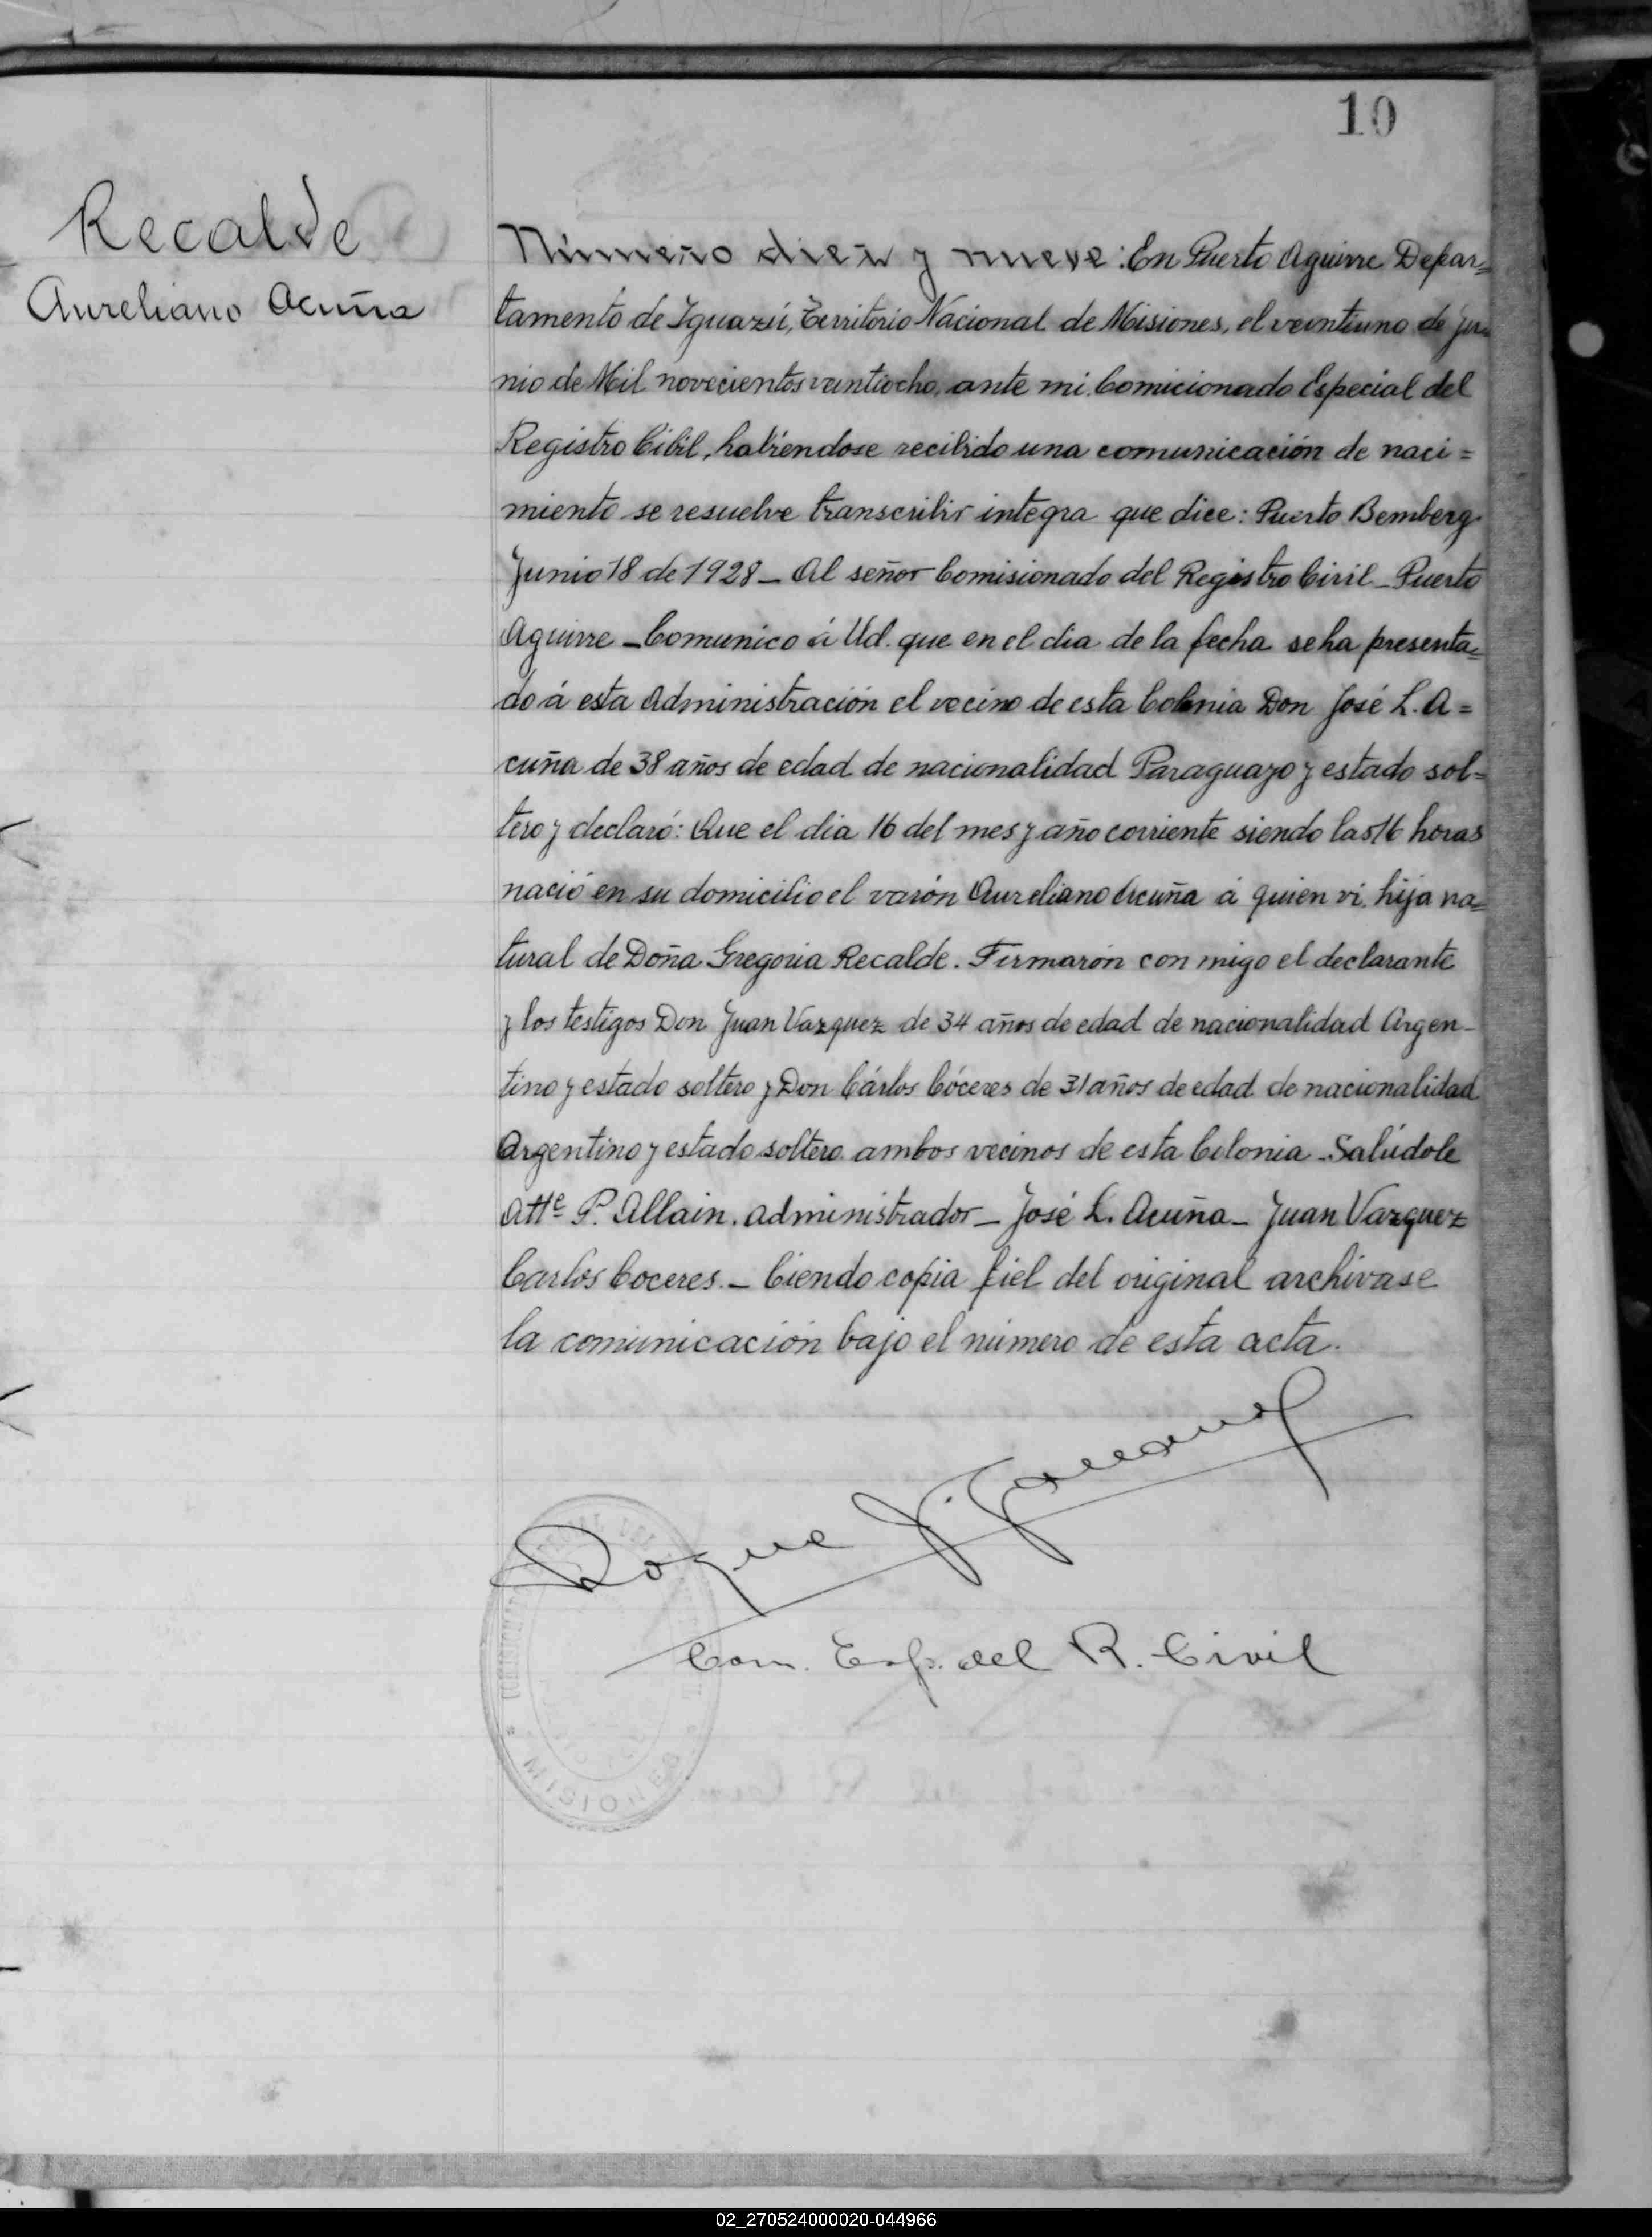 10
Recalde
Aureliano Acuña
Número diez y nueve: En Puerto Aguirre Depar=
tamento de Iguazú, Territorio Nacional de Misiones, el veintiuno de ju=
nio de Mil novecientos veintiocho, ante mi Comicionado Especial del
Registro Cibil, habiendose recibido una comunicación de naci=
miento se resuelve transcribir integra que dice: Puerto Bemberg
Junio 18 de 1928 _ Al señor Comisionado del Registro Civil _ Puerto
Aguirre _ Comunico á Ud. que en el dia de la fecha se ha presenta=
do á esta Administración el vecino de esta Colonia Don José L. A=
cuña de 38 años de edad de nacionalidad Paraguayo y estado sol=
tero y declaró: Que el dia 16 del mes y año corriente siendo las 16 horas
nació en su domicilio el varón Aureliano Acuña á quien vi, hija na=
tural de Doña Gregoria Recalde. Firmarón con migo el declarante
y los testigos Don Juan Vazquez de 34 años de edad de nacionalidad Argen-
tino y estado soltero y Don Cárlos Cóceres de 31 años de edad de nacionalidad
Argentino y estado soltero ambos vecinos de esta Colonia _ Salúdole
Atte P. Allain. administrador _ José L. Acuña _ Juan Vazquez
Carlos Coceres. _ Ciendo copia fiel del original archivase
la comunicación bajo el número de esta acta.
Roque J.
Com. Esp. del R. Civil
MISIONES
02_270524000020-044966